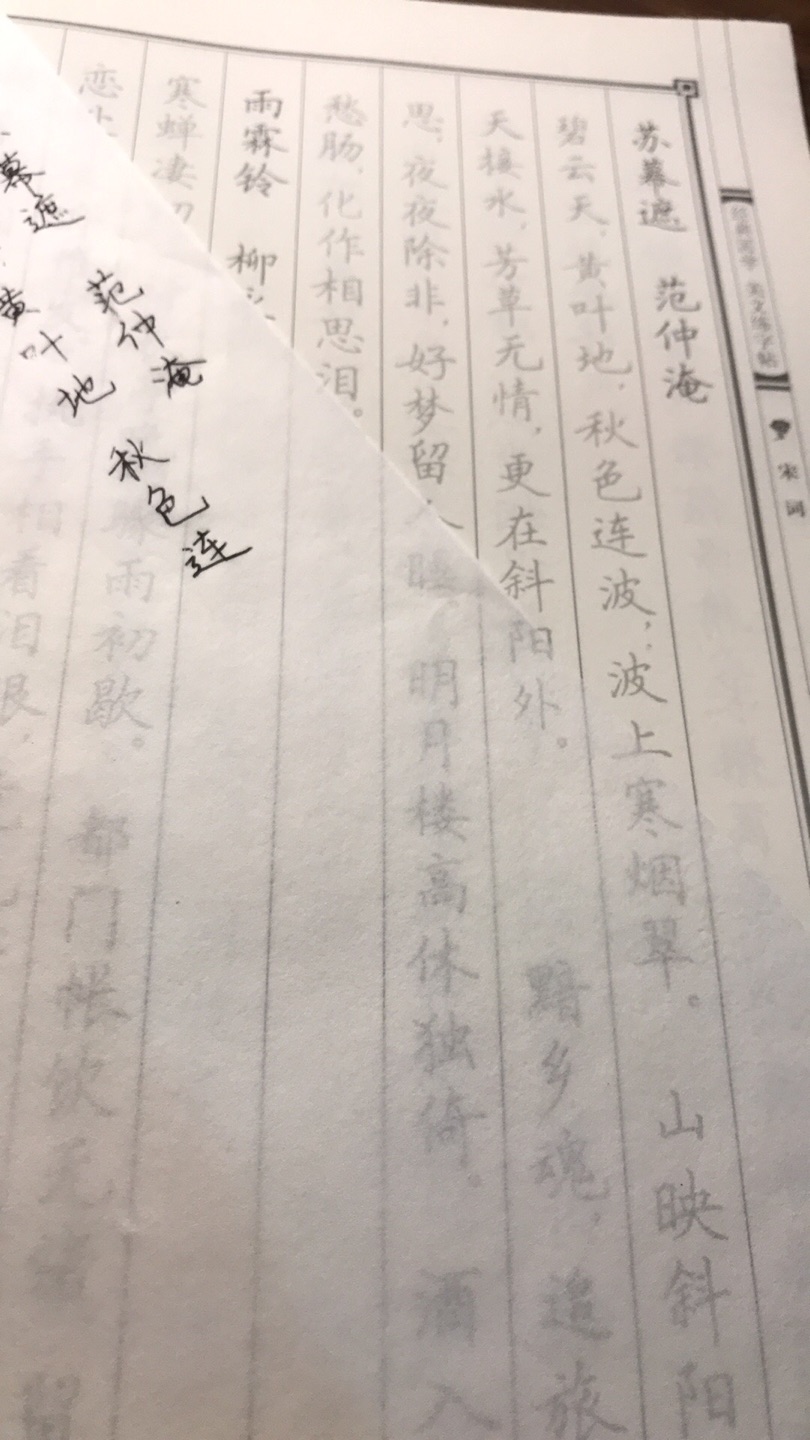 经典国学 美文练字帖
宋词
苏幕遮 范仲淹
碧云天，黄叶地，秋色连波，波上寒烟翠。 山映斜阳
天接水，芳草无情，更在斜阳外。 黯乡魂，追旅
思，夜夜除非，好梦留人睡。明月楼高休独倚。 酒入
愁肠，化作相思泪。
雨霖铃 柳
寒蝉凄切 骤雨初歇。 都门帐饮无绪 留
恋 执手相看泪眼，
幕遮 范仲淹
黄叶地 秋色连